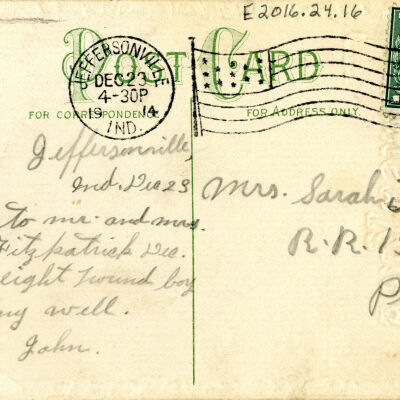 E2016.24.16
POST CARD
JEFFERSONVILLE
DEC 23
4-30P
19 14
IND.
FOR CORRESPONDENCE
FOR ADDRESS ONLY.
Jeffersonville,
Ind. Dec 23
to mr. and mrs.
Fitzpatrick Dec.
eight pound boy
well.
John.
Mrs. Sarah
R. R. 1